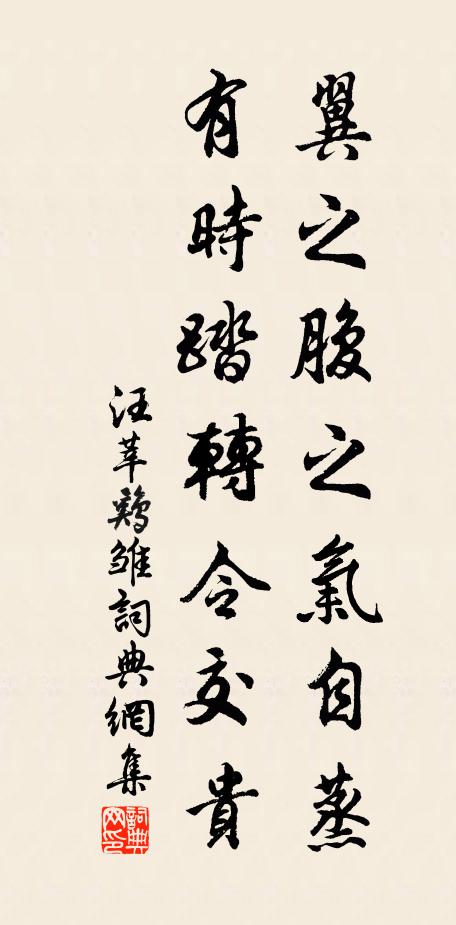 翼之腹之氣自蒸
有時踏轉令交貴
汪莘鷄雏詞典網集
詞典网印